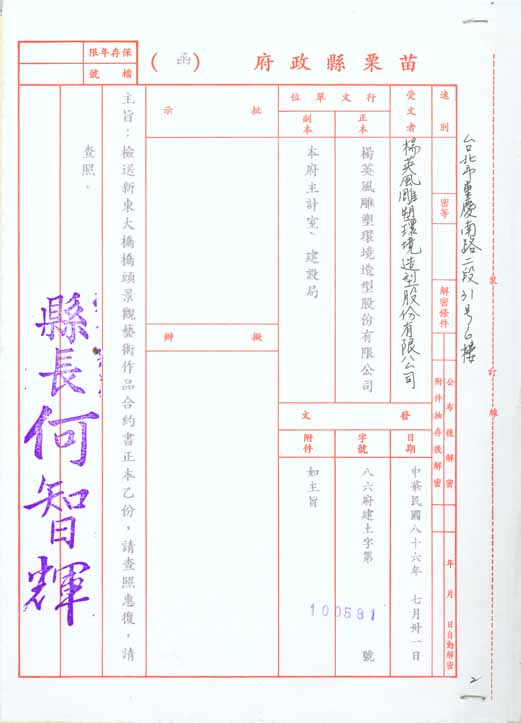 苗栗縣政府（函）
保存年限
檔號
台北市重慶南路二段31号6樓
裝
訂
線
速別
密等
解密條件
公布後解密
附件抽存後解密
年月日自動解密
受文者
楊英風雕塑環境造型股份有限公司
行文單位
正本
楊英風雕塑環境造型股份有限公司
副本
本府主計室、建設局
發文
日期
中華民國八十六年七月卅一日
字號
八六府建土字第100591號
附件
如主旨
批示
擬辦
主旨：檢送新東大橋橋頭景觀藝術作品合約書正本乙份，請查照惠復，請
查照。
縣長何智輝
2